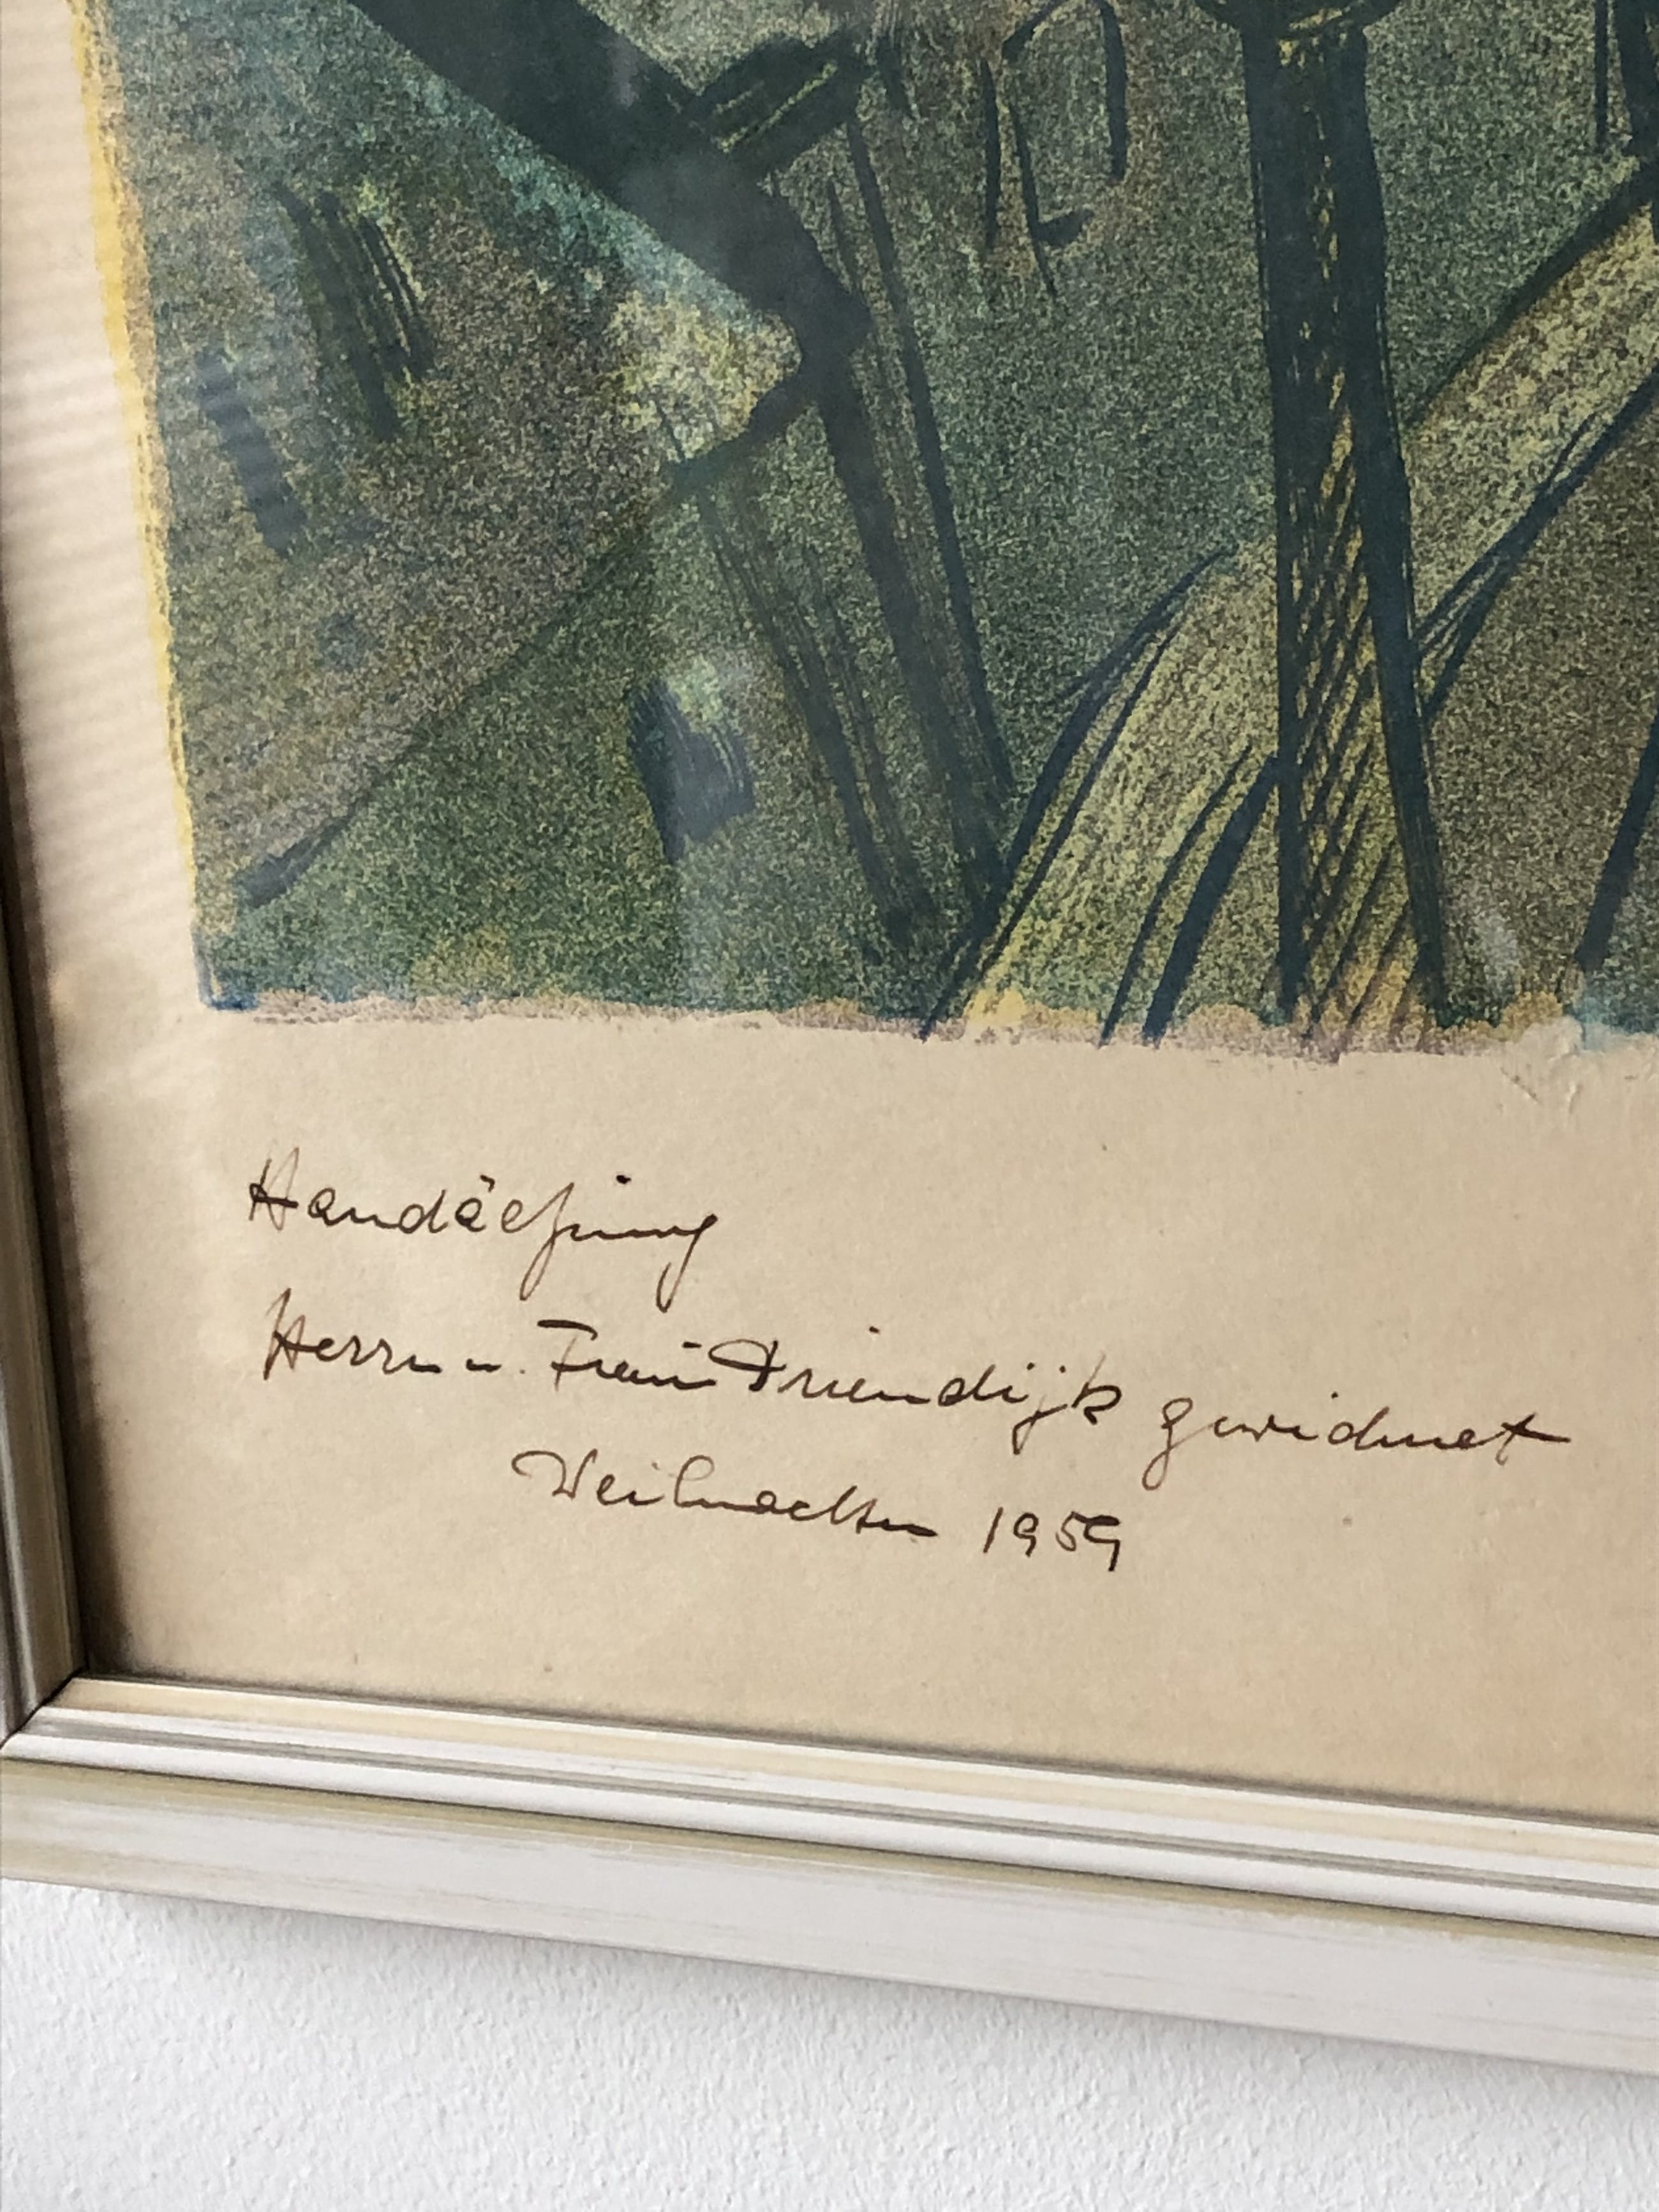 Handätzung
Herrn u. Frau Driendijk gewidmet
Weihnachten 1959